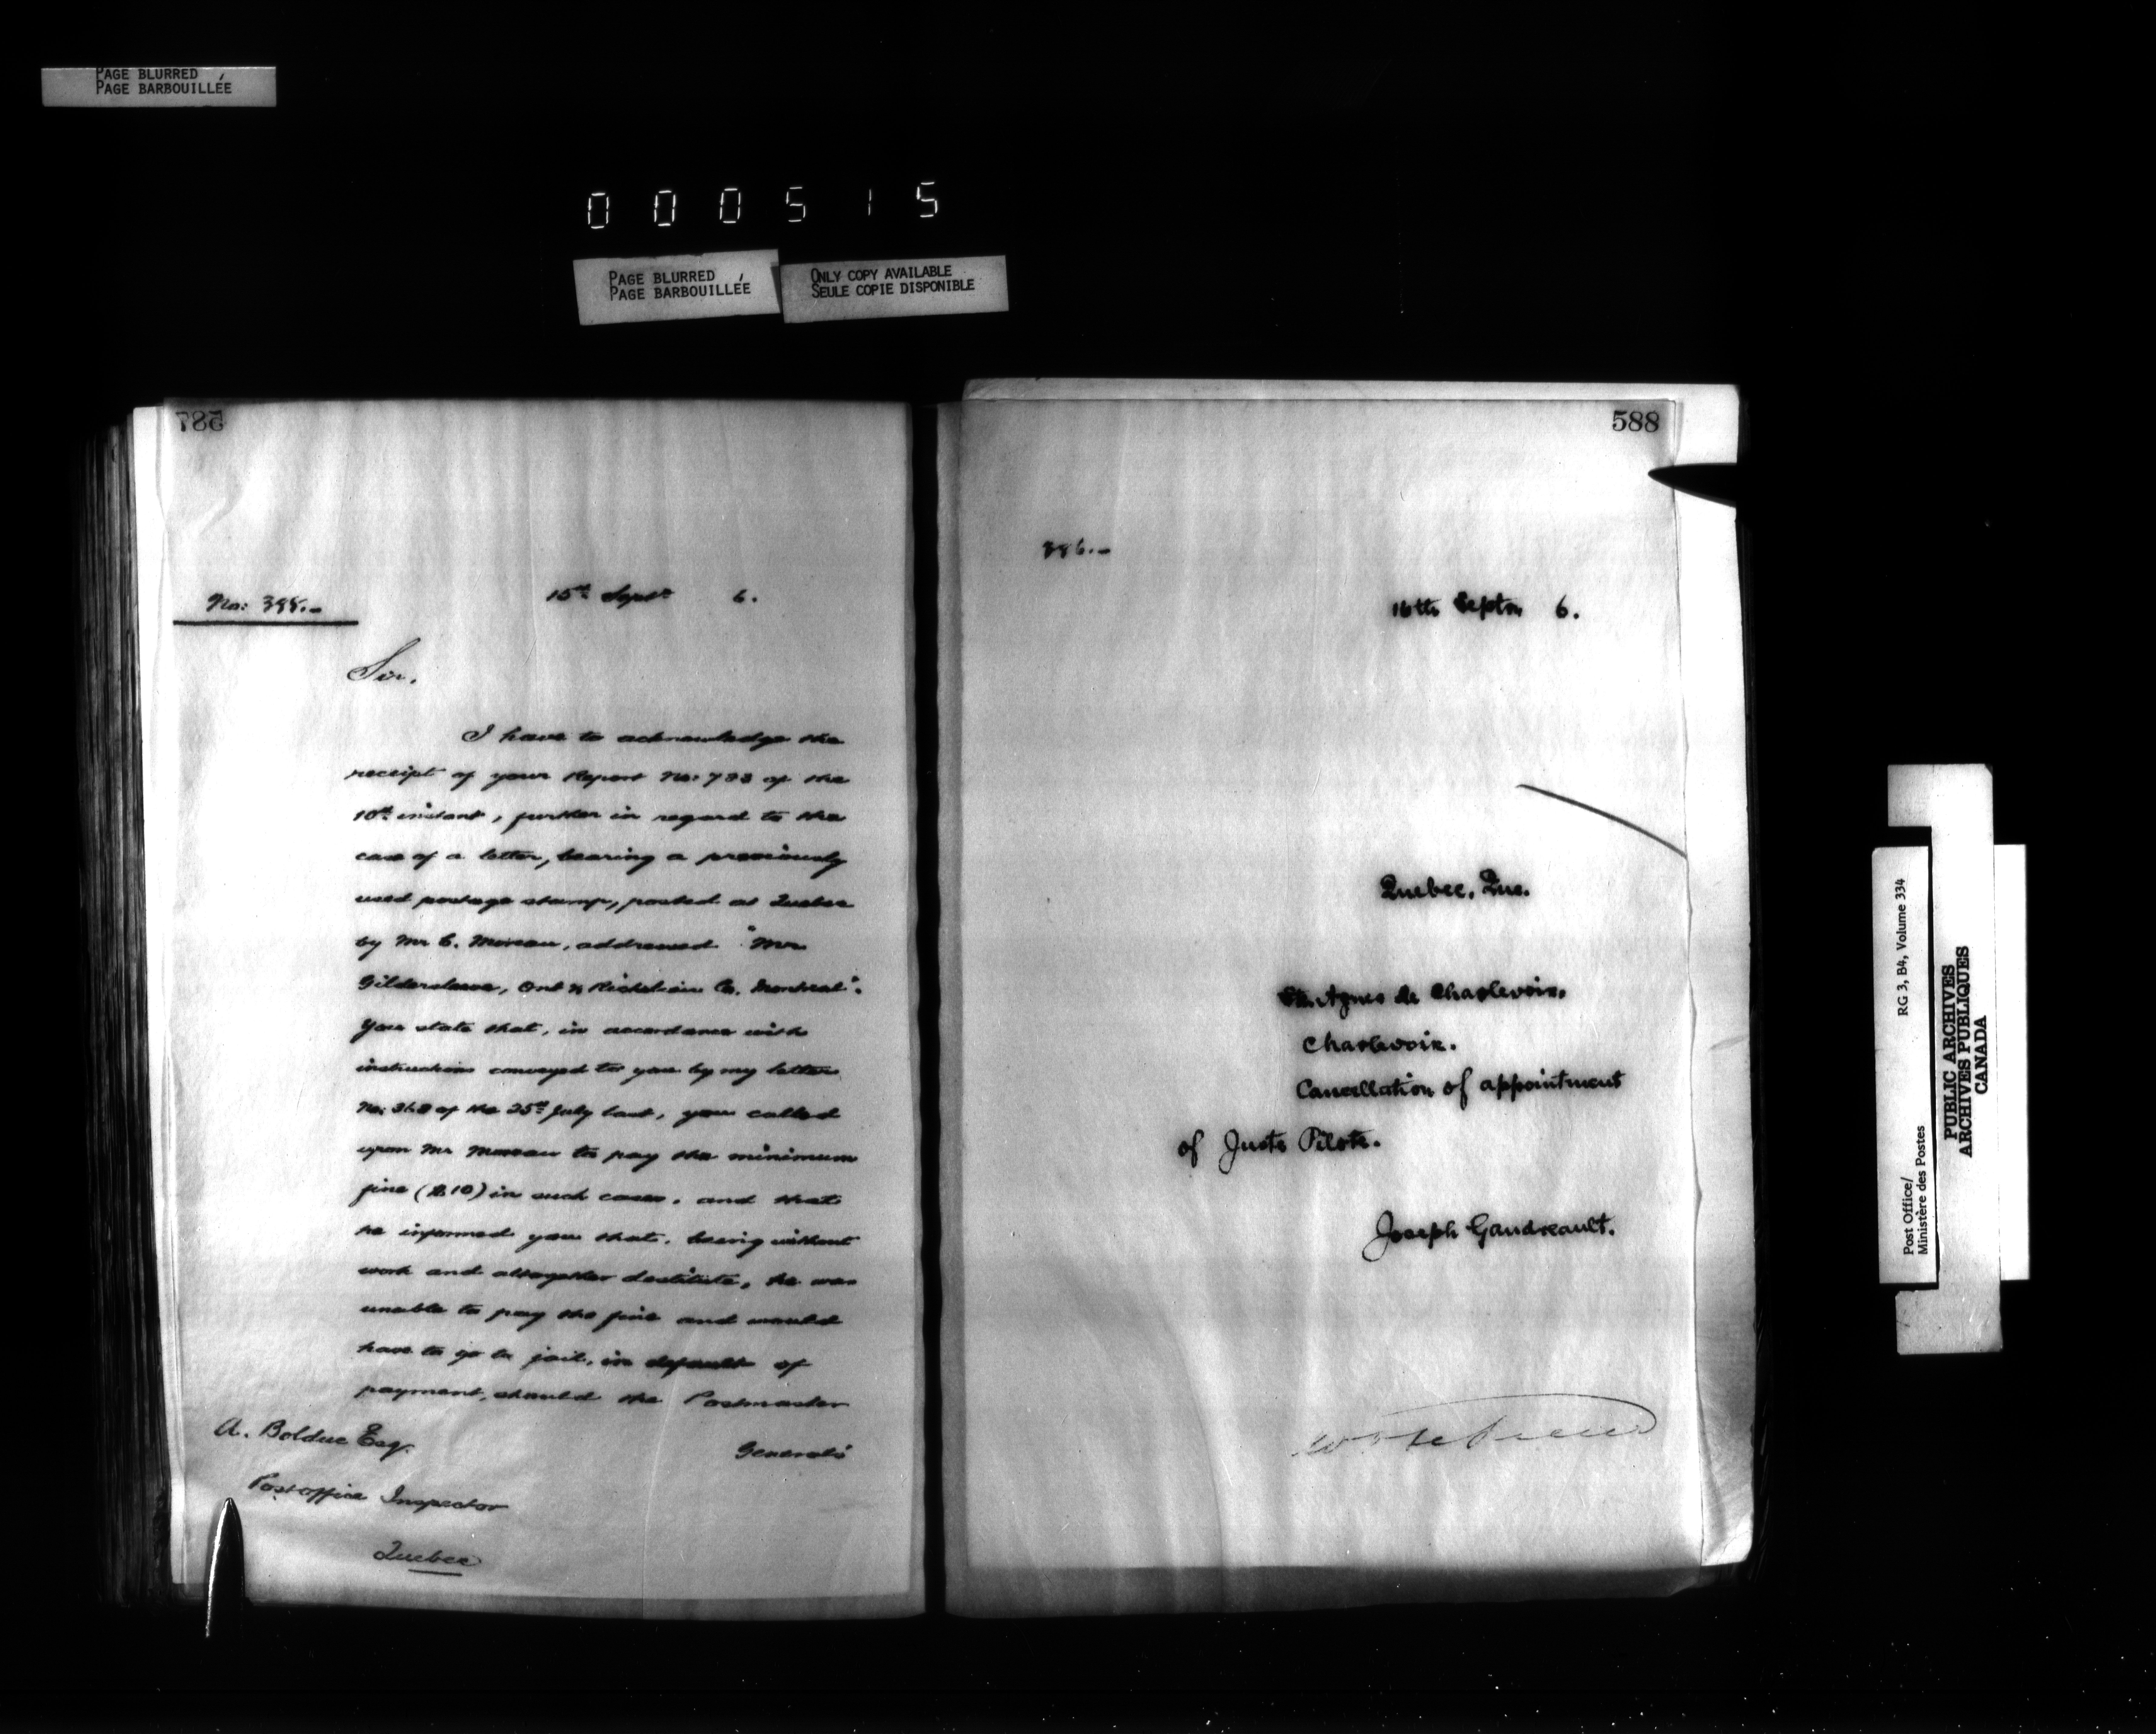 PAGE BLURRED
PAGE BARBOUILLÉE
000515
PAGE BLURRED
PAGE BARBOUILLÉE
ONLY COPY AVAILABLE
SEULE COPIE DISPONIBLE
587
No:
15th Septr 6.
Sir,
I have to acknowledge the
receipt of your Report No: 733 of the
10th instant, further in regard to the
case of a letter, bearing a previously
used postage stamp, posted at Quebec
by Mr C. Moreau, addressed "Mr
Gildersleeve, Ont & Richelieu Co. Montreal".
You state that, in accordance with
instructions conveyed to you by my letter
No: 318 of the 25th July last, you called
upon Mr Moreau to pay the minimum
fine ($10) in such cases, and that
he informed you that, being without
work and altogether destitute, he was
unable to pay the fine and would
have to go to jail, in default of
payment, should the Postmaster
General's
A. Bolduc Esq.
Postoffice Inspector
Quebec
588
386.-
16th Septr. 6.
Quebec, Que.
Ste. Agnes de Charlevoix,
Charlevoix.
Cancellation of appointment
of Juste Pilote.
Joseph Gaudreault.
Post Office/
Ministère des Postes
RG 3, B4, Volume 334
PUBLIC ARCHIVES
ARCHIVES PUBLIQUES
CANADA